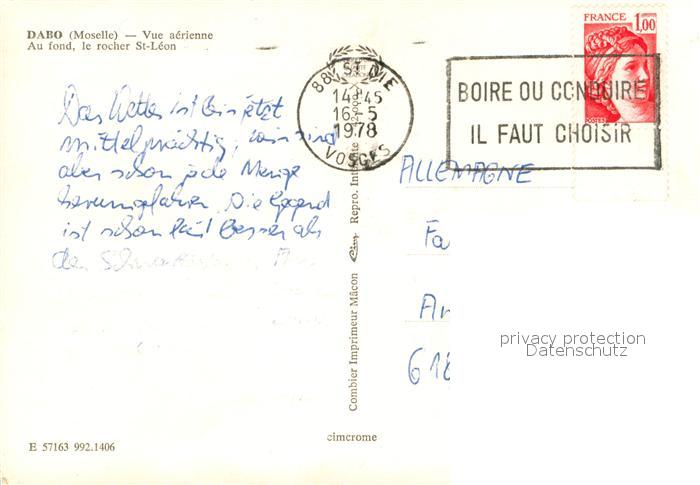 DABO (Moselle) — Vue aérienne
Au fond, le rocher St-Léon
Das Wetter ist bis jetzt
mittelprächtig, wir sind
aber schon jede Menge
herumgefahren. Die Gegend
ist schon fast besser als
der
88 ST DIE
14 H 45
16 - 5
1978
VOSGES
BOIRE OU CONDUIRE
IL FAUT CHOISIR
FRANCE 1,00
POSTES
ALLEMAGNE
Fa
An
618
Combier Imprimeur Mâcon
Cim
Repro. Interdite
privacy protection
Datenschutz
cimcrome
E 57163 992.1406